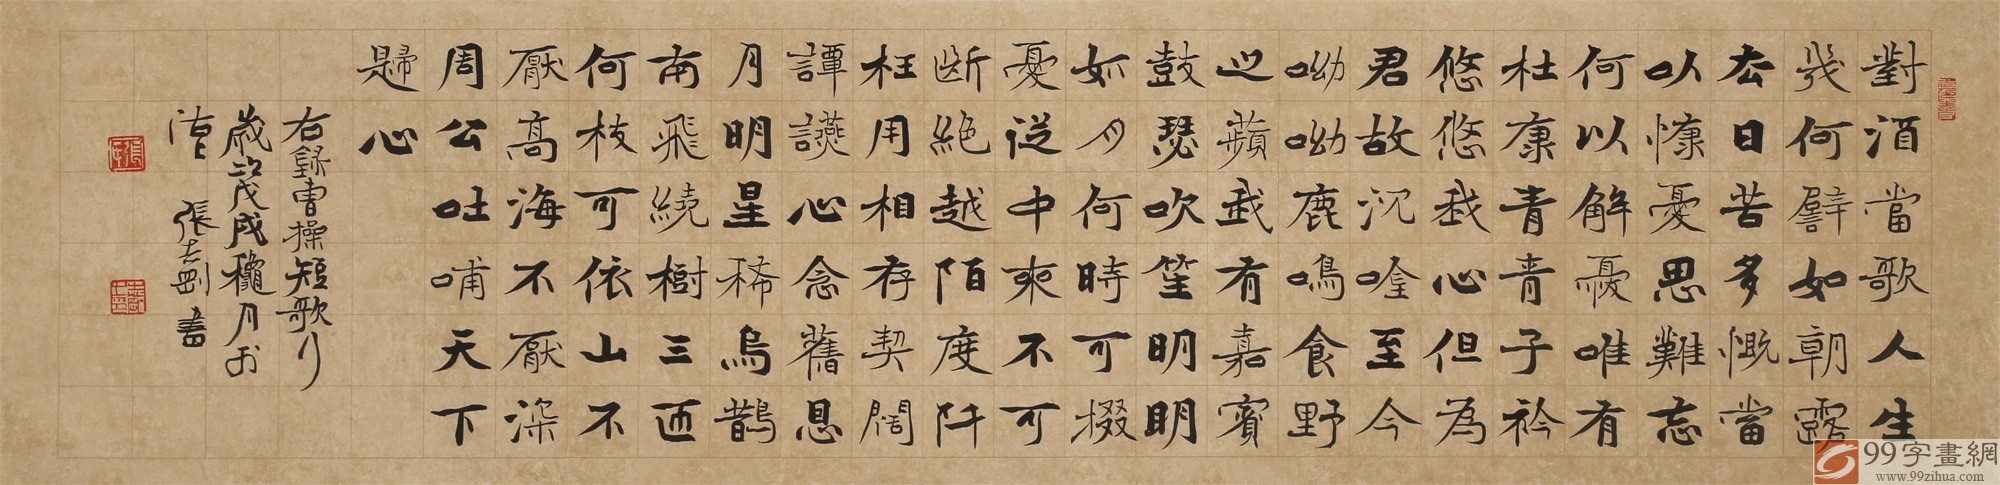 對酒當歌人生
幾何譬如朝露
去日苦多慨當
以慷憂思難忘
何以解憂唯有
杜康青青子衿
悠悠我心但為
君故沉唫至今
呦呦鹿鳴食野
之蘋我有嘉賓
鼓瑟吹笙明明
如月何時可掇
憂從中來不可
斷絕越陌度阡
枉用相存契闊
譚讌心念舊恩
月明星稀烏鵲
南飛繞樹三匝
何枝可依山不
厭高海不厭深
周公吐哺天下
歸心
右錄曹操短歌行
歲次戊戌穐月於
張志剛書
99字畫網
www.99zihua.com